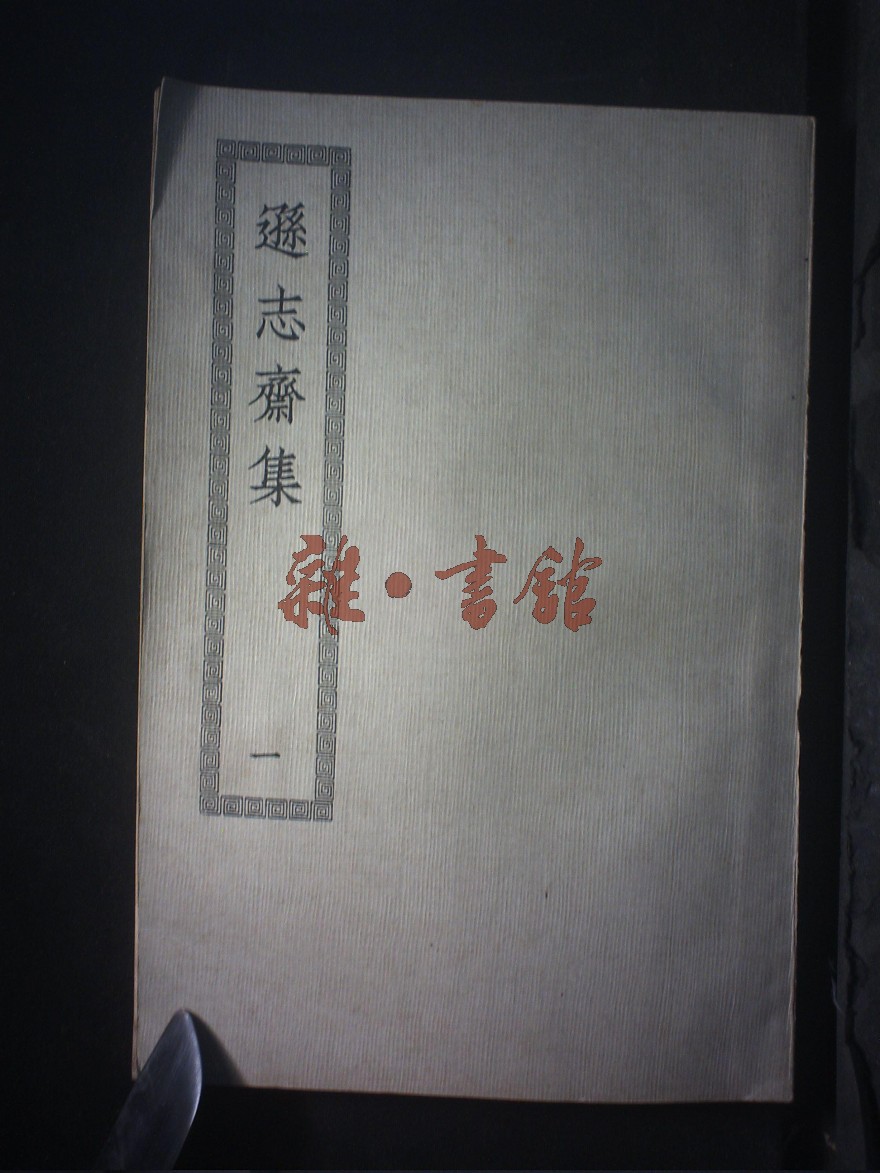 遜志齋集
一
雜·書館